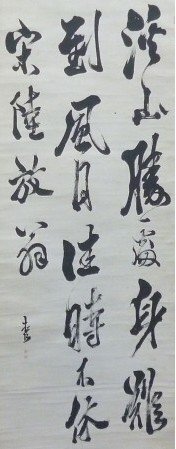 溪山勝處身難
到風月佳時不休
宋陸放翁